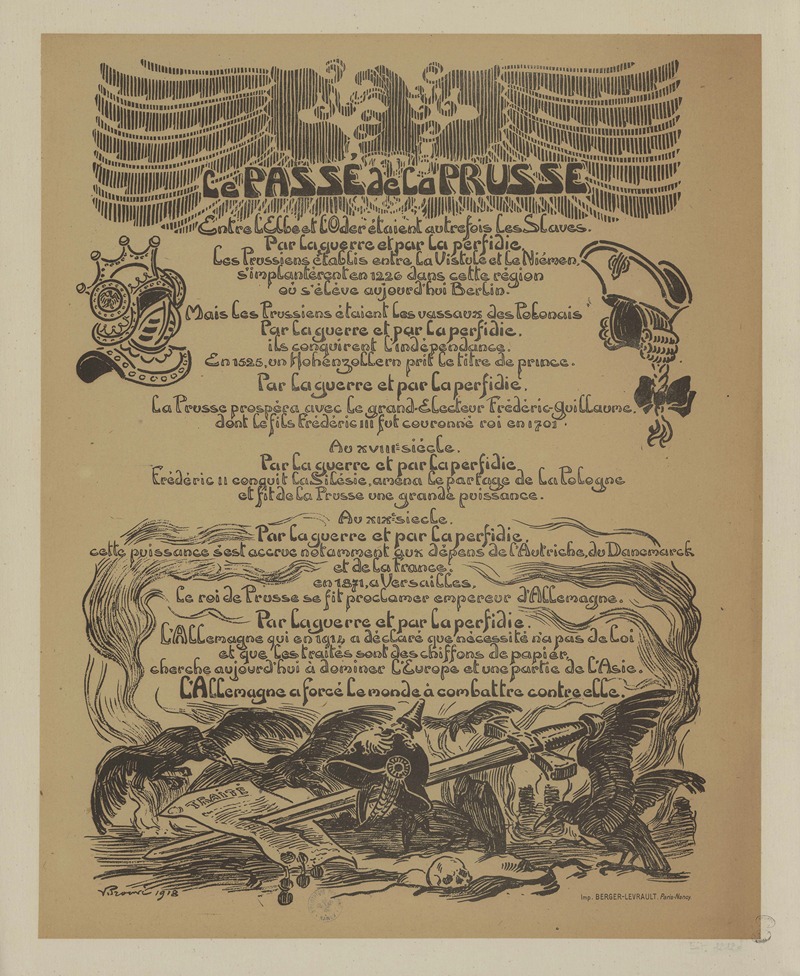 Le PASSÉ de La PRUSSE
Entre L'Elbe et L'Oder étaient autrefois Les Slaves.
Par La guerre et par La perfidie,
Les Prussiens établis entre La Vistule et Le Niémen,
s'implantèrent en 1226 dans cette région
où s'élève aujourd'hui Berlin.
Mais Les Prussiens étaient Les vassaux des Polonais
Par La guerre et par La perfidie.
ils conquirent L'indépendance.
En 1525, un Hohenzollern prit Le titre de prince.
Par La guerre et par La perfidie.
La Prusse prospéra avec Le grand-Électeur Frédéric-Guillaume.
dont Le fils Frédéric III fut couronné roi en 1701.
Au XVIIIe siècle.
Par La guerre et par La perfidie,
Frédéric II conquit La Silésie, amena Le partage de La Pologne
et fit de La Prusse une grande puissance.
Au XIXe siècle.
Par La guerre et par La perfidie.
cette puissance s'est accrue notamment aux dépens de L'Autriche, du Danemarck
et de La France.
en 1871, à Versailles,
Le roi de Prusse se fit proclamer empereur d'Allemagne.
Par La guerre et par La perfidie.
L'Allemagne qui en 1914 a déclaré que nécessité n'a pas de Loi
et que Les traités sont des chiffons de papier,
cherche aujourd'hui à dominer L'Europe et une partie de L'Asie.
L'Allemagne a forcé Le monde à combattre contre elle.
TRAITÉ
V. Prouvé 1918
Imp. BERGER-LEVRAULT. Paris-Nancy